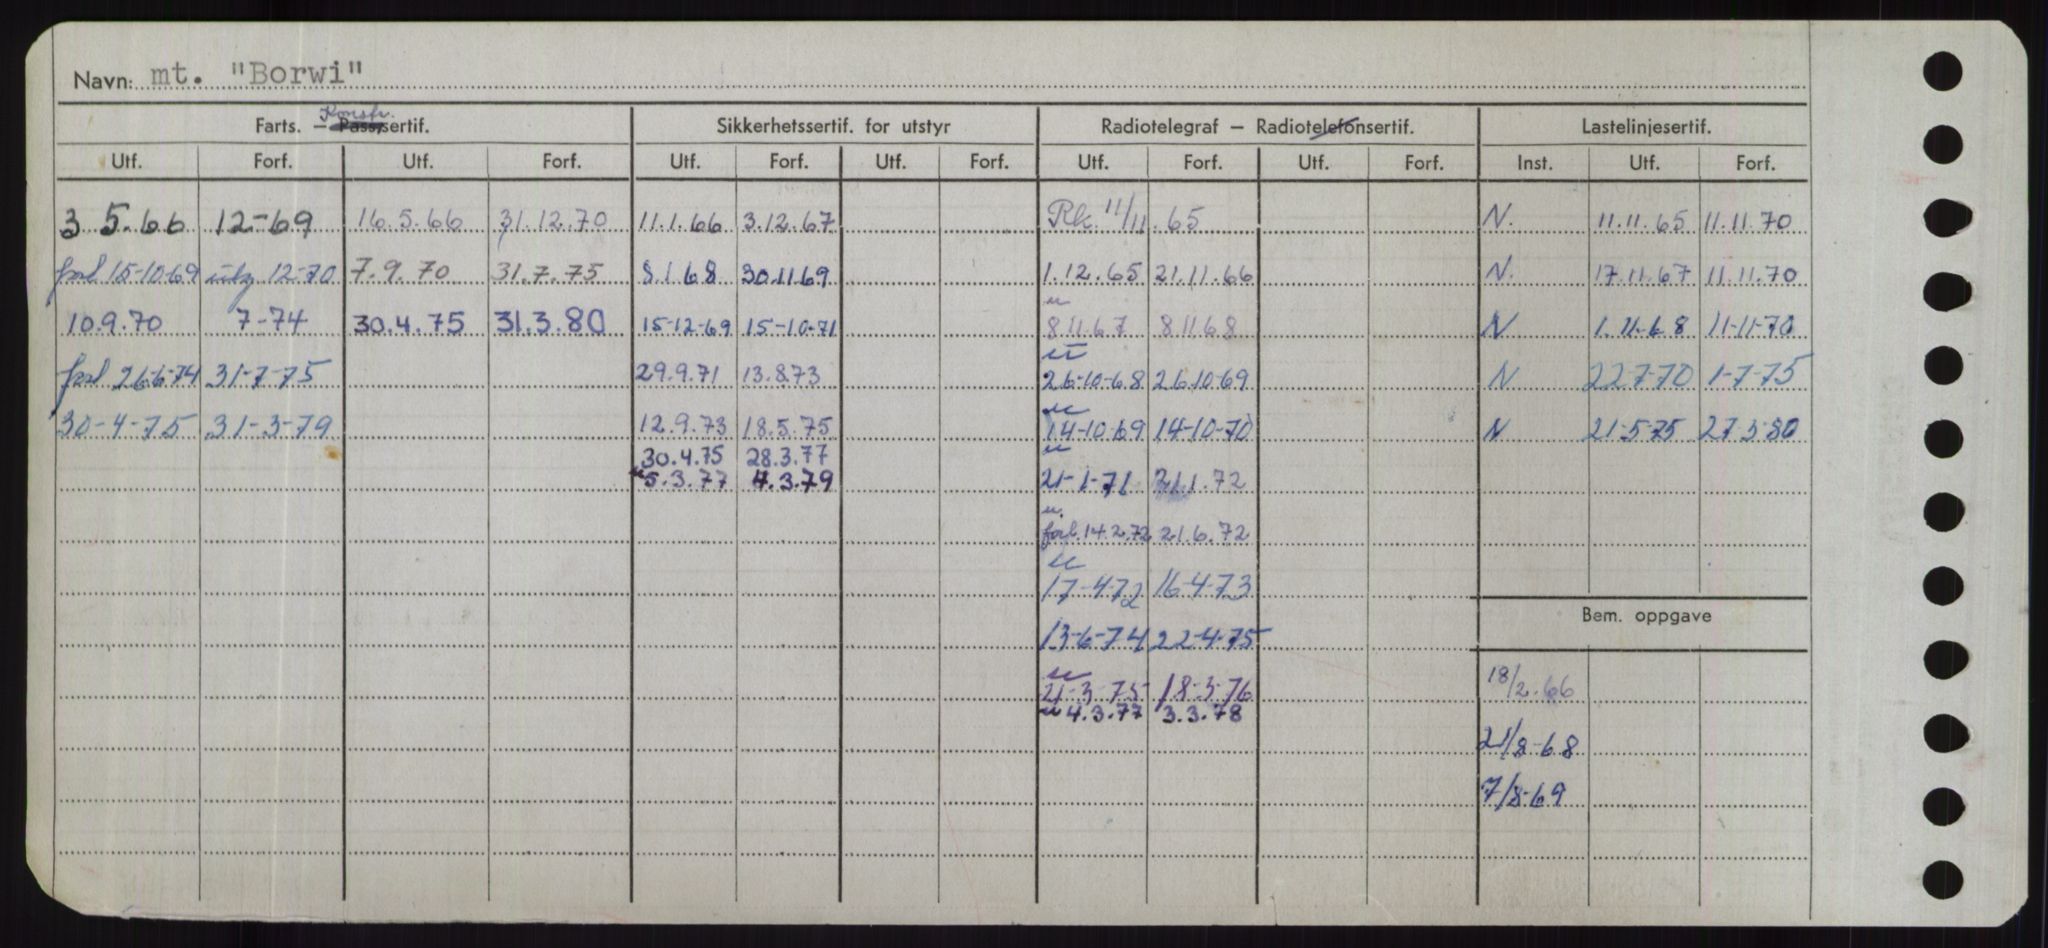 Navn: mt. "Borwi"
Konstr.
Farts. – Pass.sertif. Sikkerhetssertif. for utstyr Radiotelegraf – Radiotelefonsertif. Lastelinjesertif.
Utf. Forf. Utf. Forf. Utf. Forf. Utf. Forf. Utf. Forf. Utf. Forf. Inst. Utf. Forf.
3.5.66 12-69 16.5.66 31.12.70 11.1.66 3.12.67 Rk. 11/11.65 N. 11.11.65 11.11.70
forl 15-10-69 utg. 12-70 7.9.70 31.7.75 8.1.68 30.11.69 1.12.65 21.11.66 N. 17.11.67 11.11.70
u
10.9.70 7-74 30.4.75 31.3.80 15-12-69 15-10-71 8.11.67 8.11.68 N 1.11-68 11-11-70
u
forl 26-6-74 31-7-75 29.9.71 13.8.73 26-10-68 26.10-69 N 22-7-70 1-7-75
u
30-4-75 31-3-79 12.9.73 18.5.75 14-10-69 14-10-70 N 21-5-75 27.3.80
u
30.4.75 28.3.77
u 5.3.77 4.3.79 21-1-71 21.1.72
u.
forl. 14.2.72 21.6.72
u
17-4-72 16-4-73
Bem. oppgave
13-6-74 22-4-75
u
21-3-75 18-3-76 18/2.66
u 4.3.77 3.3.78
21/8-68
7/8-69